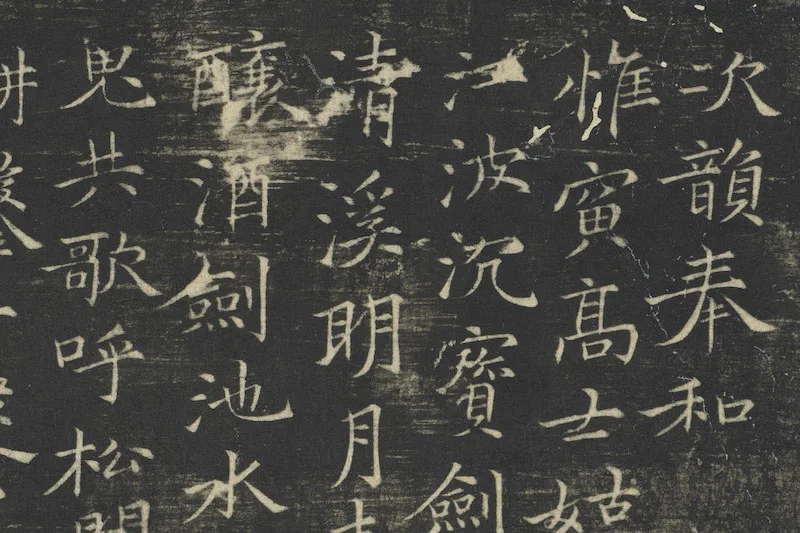 次韻奉和
惟寅髙士姑
江波沉寶劍
清溪明月
釀酒劍池水
共歌呼松間